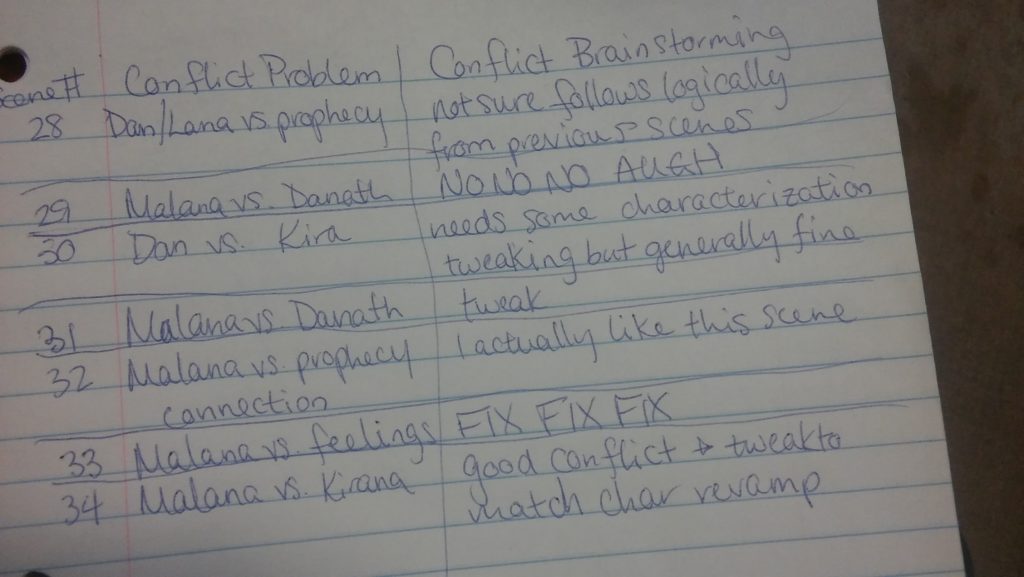 Scene # Conflict Problem | Conflict Brainstorming
28 Dan/Lana vs. prophecy not sure follows logically
from previous scenes
29 Malana vs. Danath NO NO NO AUGH
30 Dan vs. Kira needs some characterization
tweaking but generally fine
31 Malana vs Danath tweak
32 Malana vs. prophecy I actually like this scene
connection
33 Malana vs. feelings FIX FIX FIX
34 Malana vs. Kirana good conflict → tweak to
match char revamp